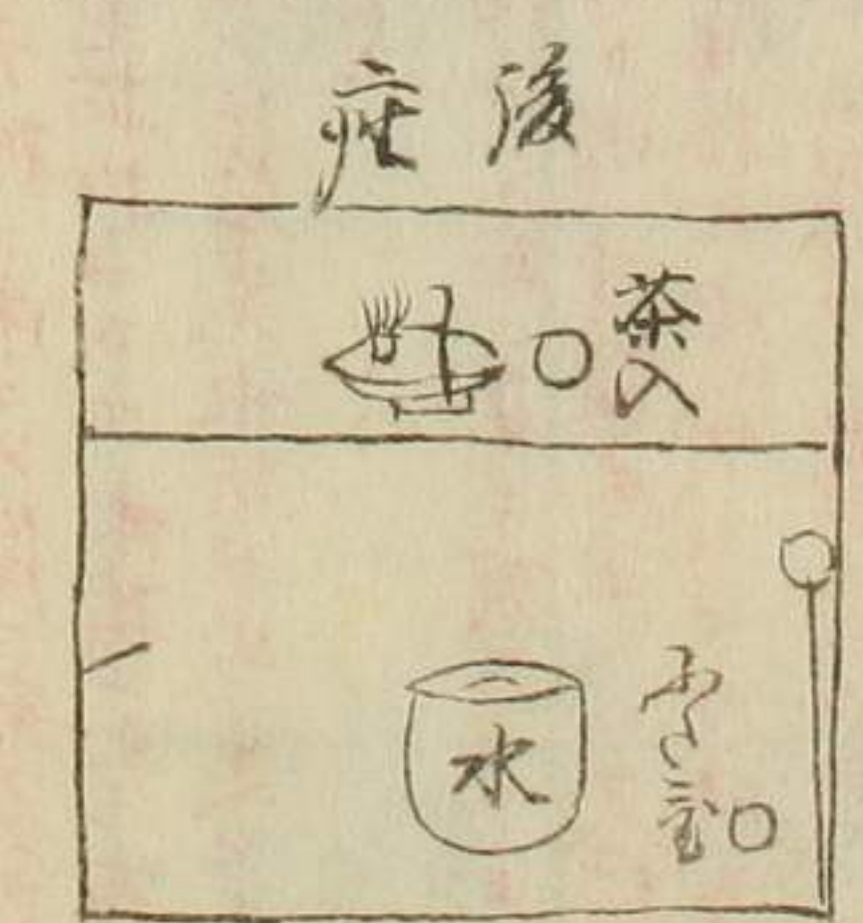 後座
茶入
水
ふた置